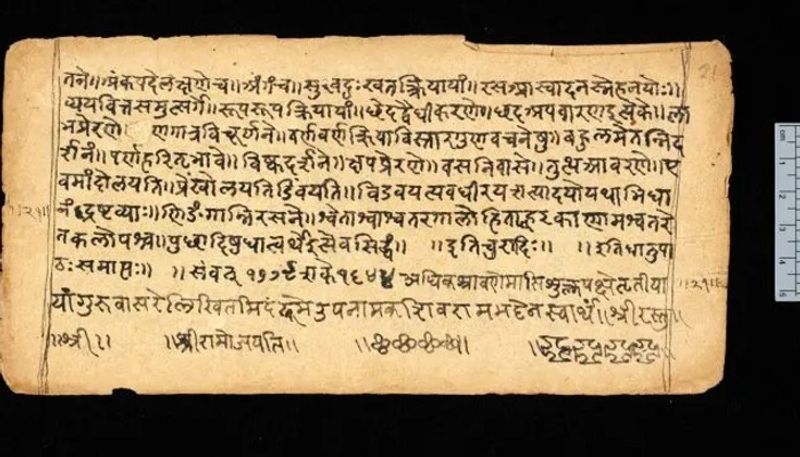 तने॥ अंक पदे लक्षणे च॥ अंग च॥ सुख दुःख तत्क्रियायां॥ रस आस्वादनस्नेहनयोः॥
व्यय वित्तसमुत्सर्गे॥ रूप रूपक्रियायां॥ छेद द्वैधीकरणे॥ छद अपवारण इत्येके॥ ला
भ प्रेरणे॥ व्रण गात्रविचूर्णने॥ वर्ण वर्णक्रियाविस्तारगुणवचनेषु॥ बहुलमेतन्निद
र्शनं॥ पर्ण हरितभावे॥ विष्क दर्शने॥ क्षप प्रेरणे॥ वस निवासे॥ तुत्थ आवरणे॥ ए
वमांदोलयति॥ प्रेंखोलयति॥ विडंबयति॥ अवधीरयतीत्यादयो यथाभिधा
नं द्रष्टव्याः॥ णिङंगान्निरसने॥ श्वेताश्वाश्वतरगालोडिताह्वरकाणामश्वतरे
तकलोपश्च॥ पुच्छादिषु धात्वर्थ इत्येव सिद्धं॥ ॥इति चुरादिः॥ ॥इति धातुपा
ठः समाप्तः॥ ॥संवत् १७७९ शके १६४४ अधिकश्रावणे मासि शुक्लपक्षे तृतीया
यां गुरुवासरे लिखितमिदं उपनामकशिवरामभट्टेन स्वार्थं॥ श्रीरस्तु॥
॥श्री॥ ॥श्रीरामो जयति॥